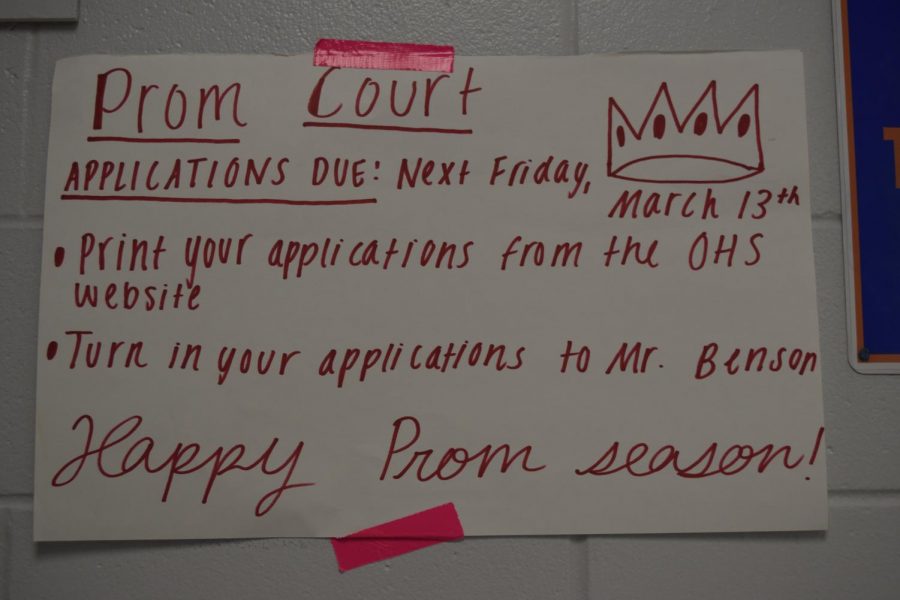 Prom Court
APPLICATIONS DUE: Next Friday,
March 13th
• Print your applications from the OHS
website
• Turn in your applications to Mr. Benson
Happy Prom season!